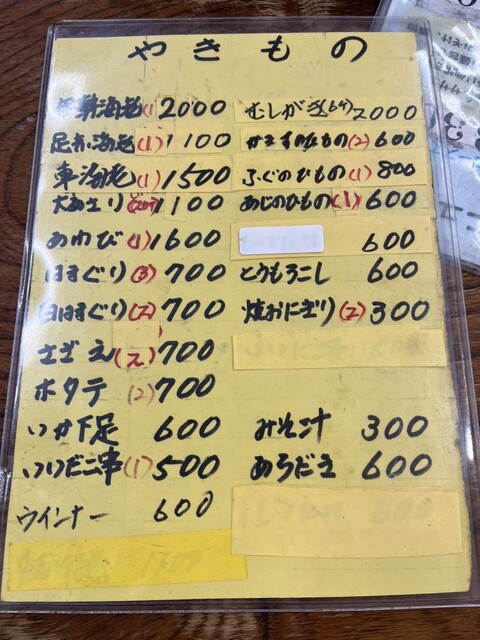 やきもの
車海老(1) 2000
足赤海老(1) 1100
車海老(1) 1500
大あさり 1100
あわび(1) 1600
はまぐり(3) 700
白はまぐり(2) 700
さざえ(2) 700
ホタテ(2) 700
いか下足 600
いいだこ串(1) 500
ウインナー 600
むしがき 2000
かますのひもの(2) 600
ふぐのひもの(1) 800
あじのひもの(1) 600
600
とうもろこし 600
焼おにぎり(2) 300
みそ汁 300
あらだき 600